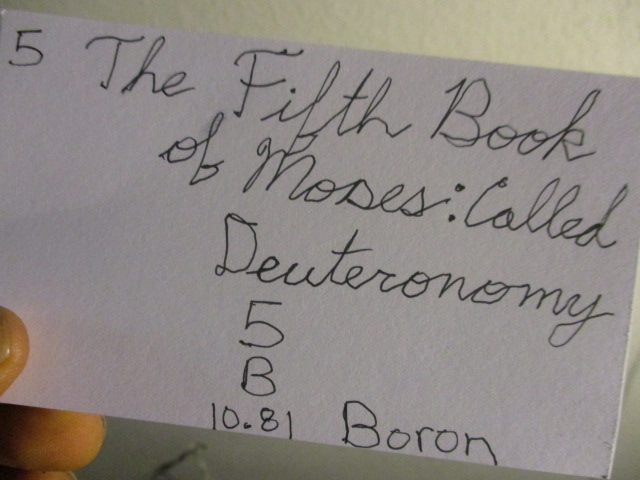 5 The Fifth Book
of Moses: Called
Deuteronomy
5
B
10.81 Boron